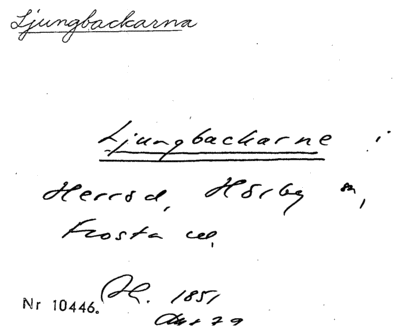 Ljungbackarna
Ljungbackarne i
Herröd, Hörby sn,
Frosta
Nr 10446. 1851